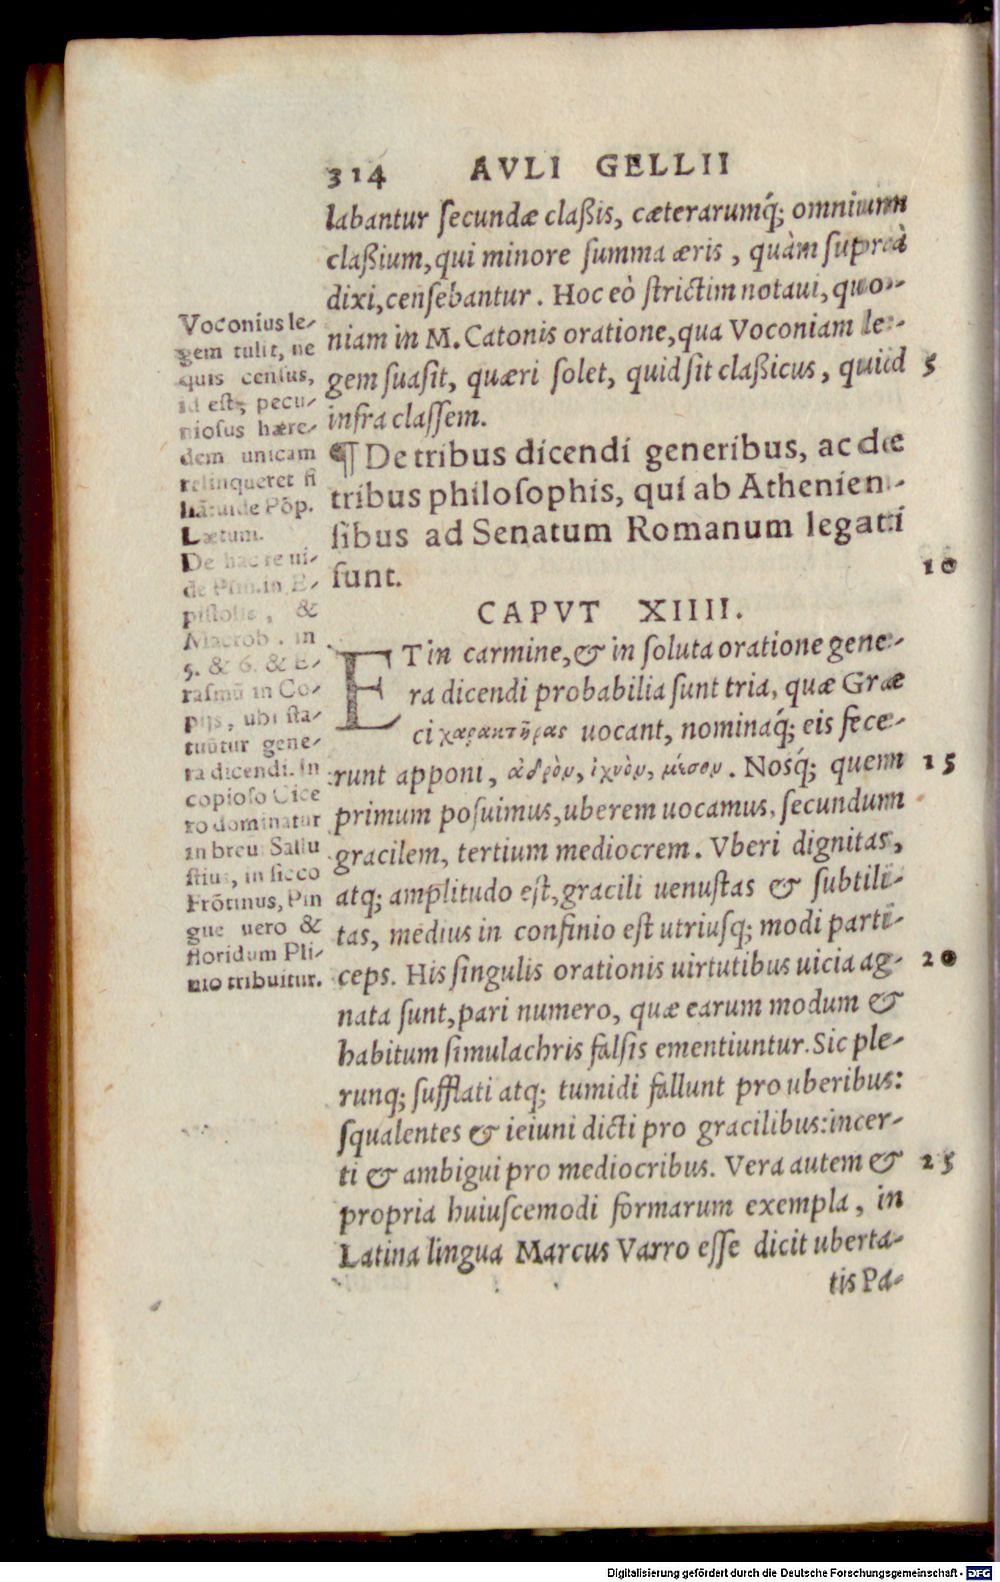 314 AVLI GELLII
labantur ſecundæ claßis, cæterarumq́; omnium
claßium, qui minore ſumma æris, quàm ſuprà
dixi, cenſebantur. Hoc eò ſtrictim notaui, quo-
niam in M. Catonis oratione, qua Voconiam le-
gem ſuaſit, quæri ſolet, quid ſit claßicus, quid 5
infra claſſem.
¶ De tribus dicendi generibus, ac de
tribus philoſophis, qui ab Athenien-
ſibus ad Senatum Romanum legati
ſunt. 10
CAPVT XIIII.
ET in carmine, & in ſoluta oratione gene-
ra dicendi probabilia ſunt tria, quæ Græ
ci χαρακτῆρας uocant, nominaq́; eis fece-
runt apponi, ἁδρὸν, ἰχνὸν, μέσον. Nosq́; quem 15
primum poſuimus, uberem uocamus, ſecundum
gracilem, tertium mediocrem. Vberi dignitas,
atq; amplitudo eſt, gracili uenuſtas & ſubtili-
tas, medius in confinio eſt utriuſq; modi parti-
ceps. His ſingulis orationis uirtutibus uicia ag- 20
nata ſunt, pari numero, quæ earum modum &
habitum ſimulachris falſis ementiuntur. Sic ple-
runq; ſufflati atq; tumidi fallunt pro uberibus:
ſqualentes & ieiuni dicti pro gracilibus: incer-
ti & ambigui pro mediocribus. Vera autem & 25
propria huiuſcemodi formarum exempla, in
Latina lingua Marcus Varro eſſe dicit uberta-
tis Pa-
Voconius le-
gem tulit, ne
quis cenſus,
id eſt, pecu-
nioſus hære-
dem unicam
relinqueret fi
liã: uide Põp.
Lætum.
De hac re ui-
de Plin. in E-
piſtolis, &
Macrob. in
5. & 6. & E-
raſmũ in Co-
pijs, ubi ſta-
tuũtur gene-
ra dicendi. In
copioſo Cice
ro dominatur
in breui Sallu
ſtius, in ſicco
Frõtinus, Pin
gue uero &
floridum Pli-
nio tribuitur.
Digitalisierung gefördert durch die Deutsche Forschungsgemeinschaft - DFG